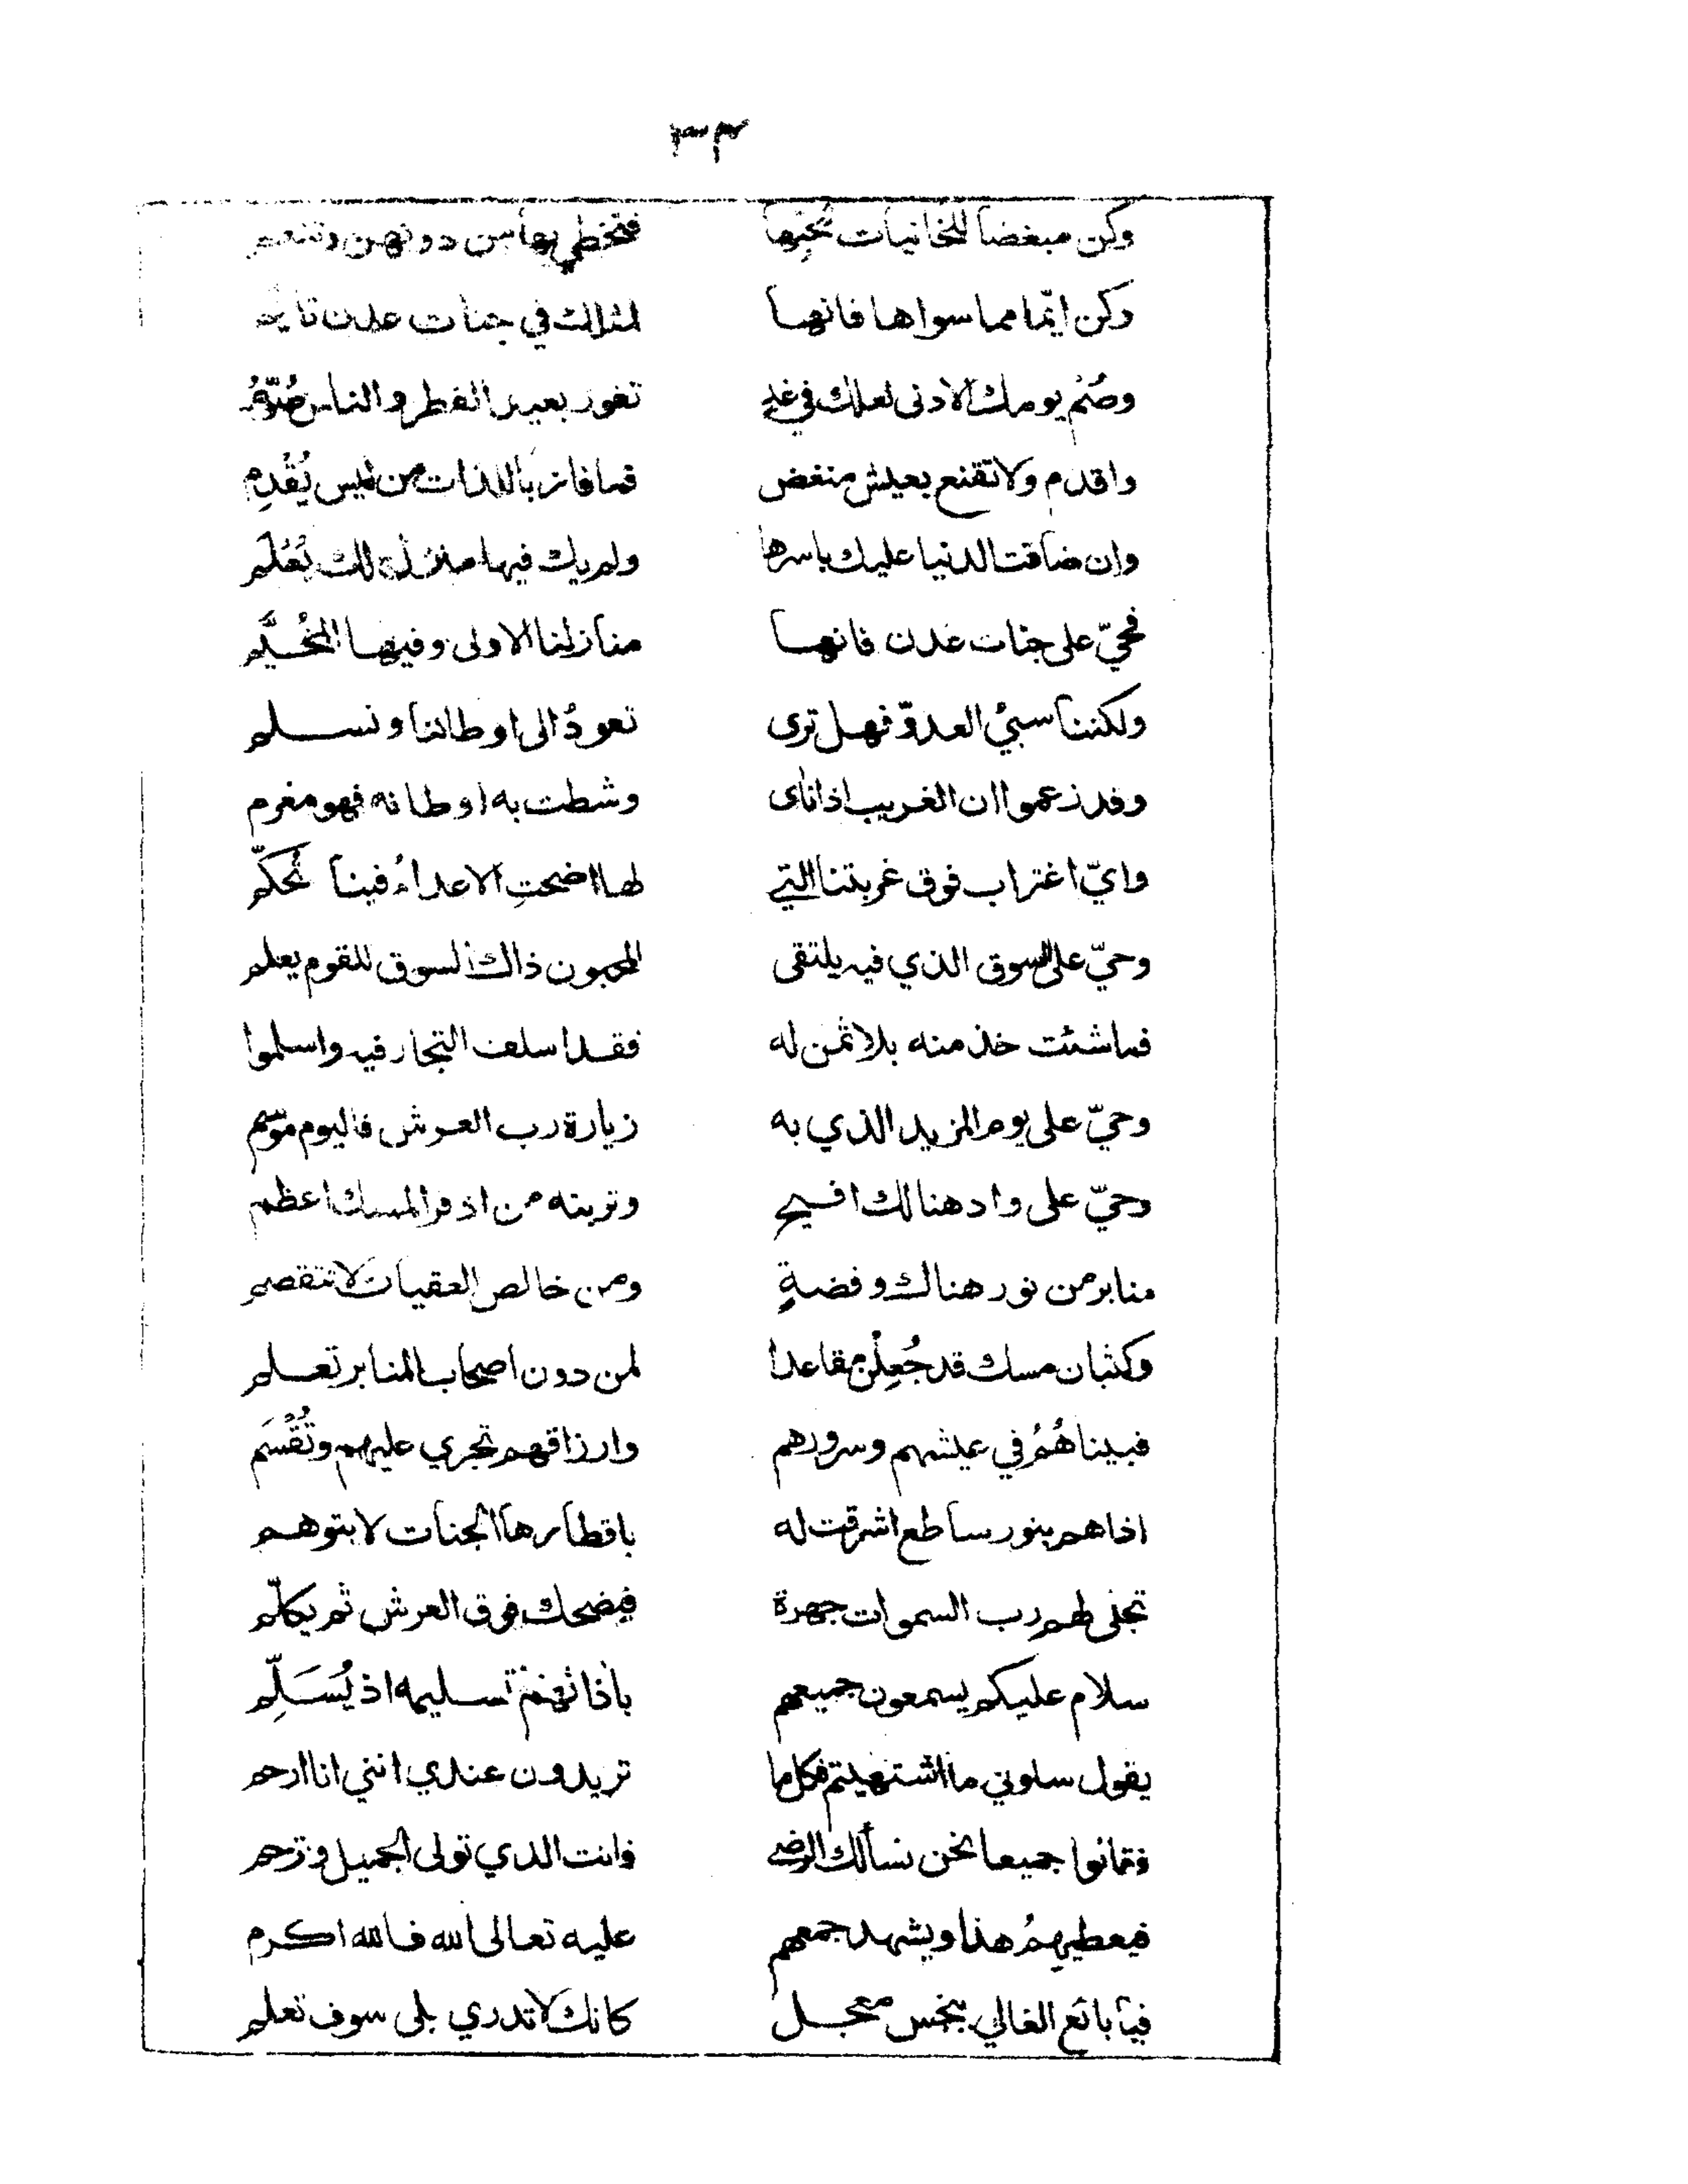 ٣٣
وكن مبغضا للخائنات بحبها فتحظي بها من دونهن وتنعم
وكن ايّما مما سواها فانها لمثلك في جنات عدن تايم
وصُمْ يومك الادنى لعلك في غدٍ تفوز بعيد الفطر والناس صُوّمُ
واقدم ولا تقنع بعيش منغض فما فاز باللذات من ليس يُقْدِم
وان ضاقت الدنيا عليك باسرها ولم يك فيها منزل لك يُعْلَم
فحيّ على جنات عدن فانها منازلنا الاولى وفيها المُخَيَّم
ولكننا سبيُ العدوّ فهل ترى نعودُ الى اوطاننا ونسلم
وقد زعموا ان الغريب اذا ناى وشطت به اوطانه فهو مغرم
وايّ اغتراب فوق غربتنا التي لها اضحتِ الاعداءُ فينا تحكّم
وحيّ على السوق الذي فيه يلتقى المحبون ذاك السوق للقوم يعلم
فما شئت خذ منه بلا ثمن له فقد اسلف التجار فيه واسلموا
وحيّ على يوم المزيد الذي به زيارة رب العرش فاليوم موسم
وحيّ على واد هنالك افسيح وتربته من اذفر المسك اعظم
منابر من نور هناك وفضةٍ ومن خالص العقيان لا تتقصم
وكثبان مسك قد جُعِلْن مقاعدا لمن دون اصحاب المنابر تعلم
فبيناهُمُ في عيشهم وسرورهم وارزاقهم تجري عليهم وتُقْسَم
اذا هم بنور ساطع اشرقت له باقطارها الجنات لا يتوهم
تجلى لهم رب السموات جهرة فيضحك فوق العرش ثم يكلّم
سلام عليكم يسمعون جميعهم باذانهم تسليمه اذ يُسَلِّم
يقول سلوني ما اشتهيتم فكل ما تريدون عندي انني انا ارحم
فقالوا جميعا نحن نسألك الرضى فانت الذي تولى الجميل وترحم
فيعطيهمُ هذا ويشهد جمعهم عليه تعالى الله فالله اكرم
فيا بائع الغالي ببخس معجل كانك لا تدري بلى سوف تعلم